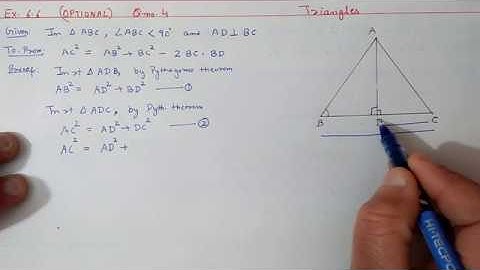 Ex- 6.6 (OPTIONAL) Q.no. 4 Triangles
Given: In △ ABC, ∠ABC < 90° and AD ⊥ BC
To Prove: AC² = AB² + BC² - 2 BC · BD
Proof: In rt △ ADB, by Pythagoras theorem
AB² = AD² + BD² —— ①
In rt △ ADC, by Pyth. theorem
AC² = AD² + DC² —— ②
AC² = AD² +
A
B D C
HITECPO